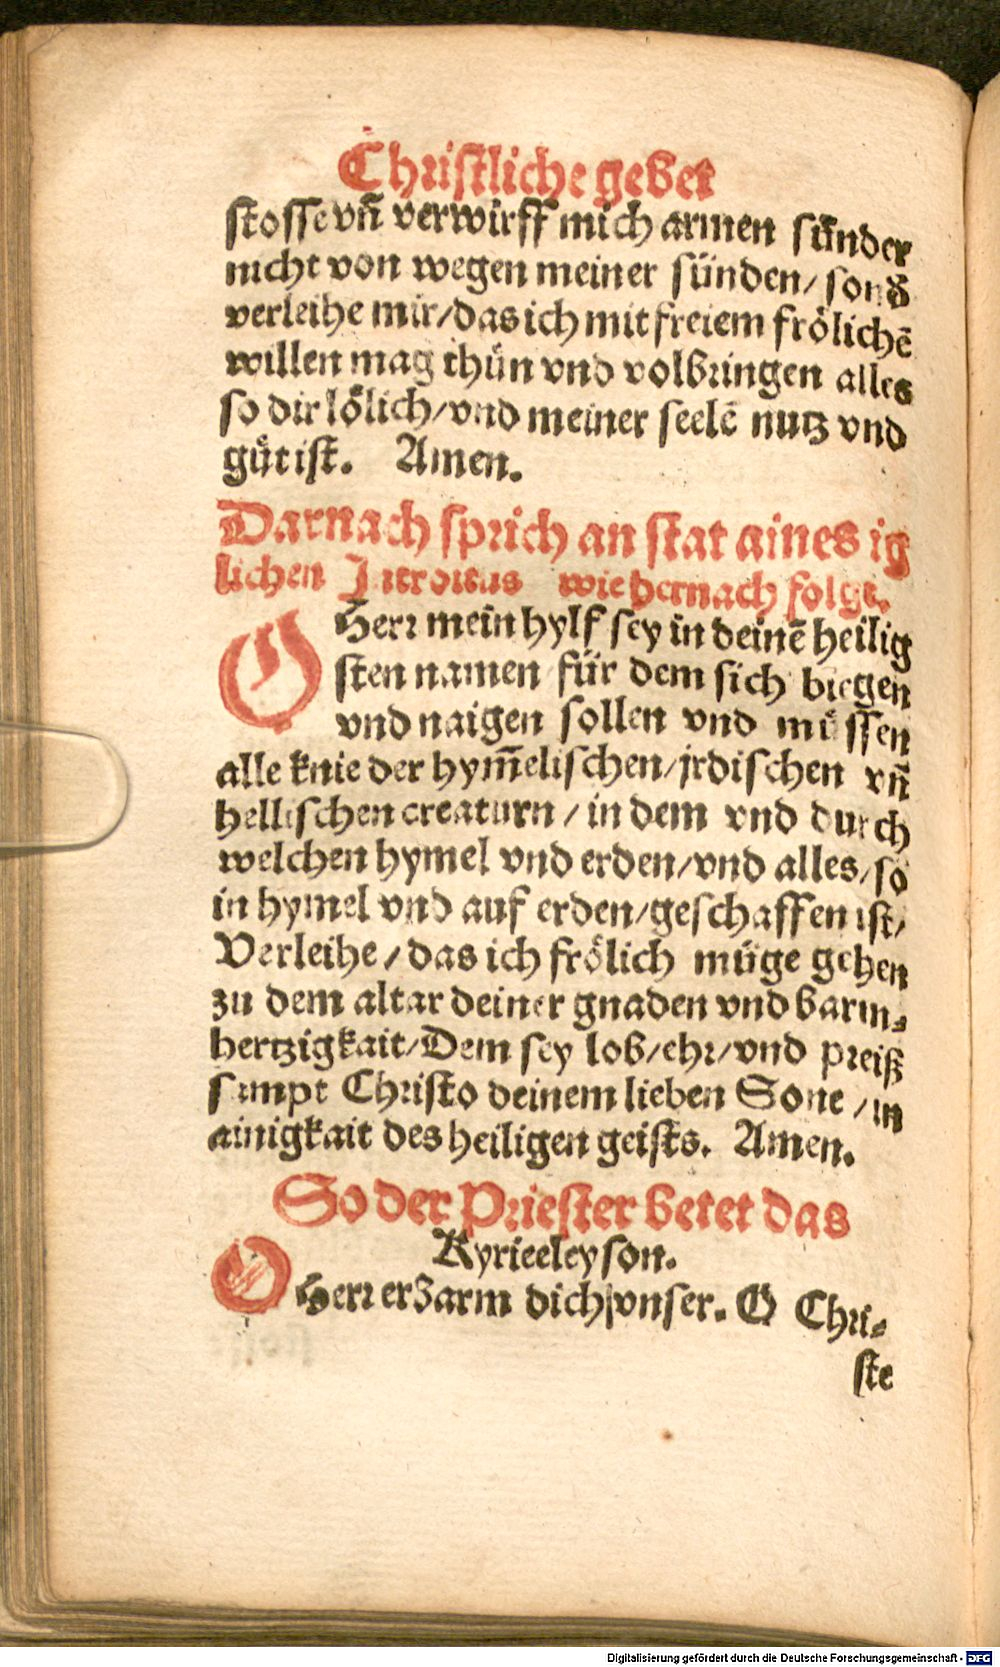 Christliche gebet
stosse vn̄ verwirff mich armen sünder
nicht von wegen meiner sünden/ sond̕
verleihe mir/das ich mit freiem frölichē
willen mag thün vnd volbringen alles
so dir lölich/vnd meiner seelē nutz vnd
gůt ist. Amen.
Darnach sprich an stat aines ig
lichen Introitus wie hernach folgt.
O Herr mein hylf sey in deinē heilig
sten namen für dem sich biegen
vnd naigen sollen vnd müssen
alle knie der hym̄elischen/jrdischen vn̄
hellischen creaturn / in dem vnd durch
welchen hymel vnd erden/vnd alles/so
in hymel vnd auf erden/geschaffen ist/
Verleihe/das ich frölich müge gehen
zu dem altar deiner gnaden vnd barm-
hertzigkait/Dem sey lob/ehr/vnd preiß
sampt Christo deinem lieben Sone /in
ainigkait des heiligen geists. Amen.
So der Priester betet das
Kyrieeleyson.
O Herr erbarm dich vnser. O Chri-
ste
Digitalisierung gefördert durch die Deutsche Forschungsgemeinschaft - DFG